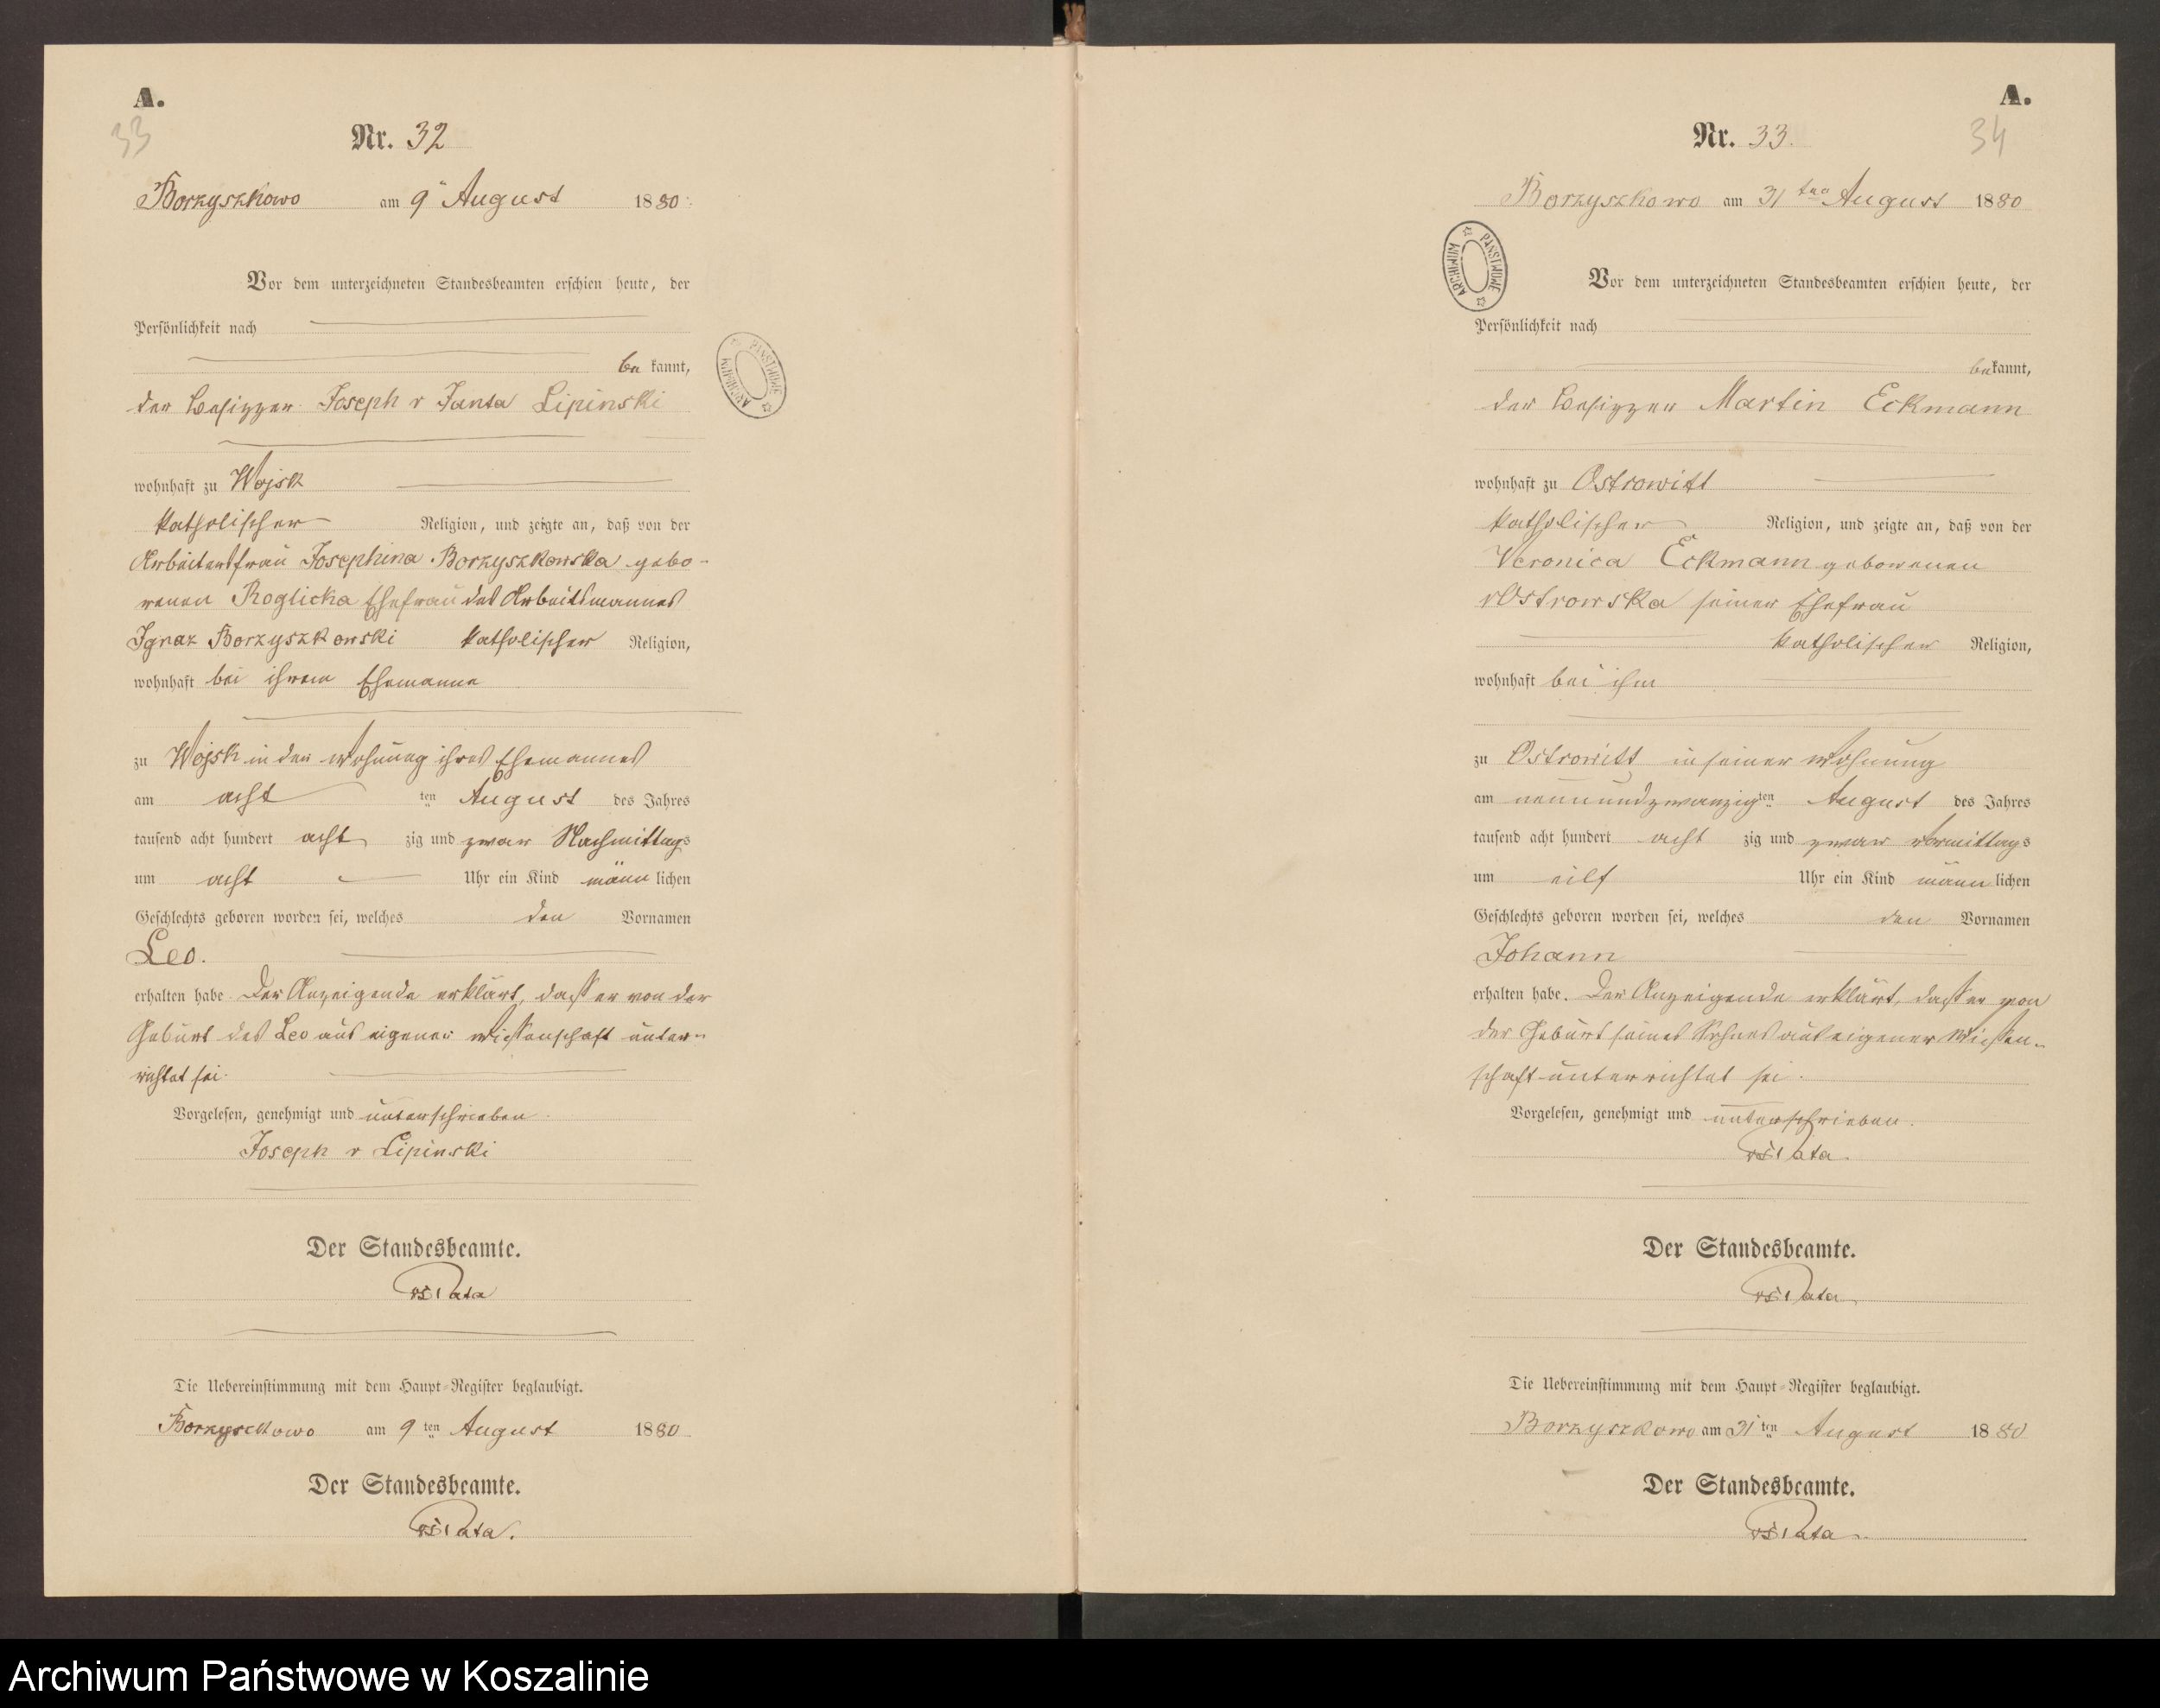 A.
33
Nr. 32
Borzyszkowo am 9 August 1880
Vor dem unterzeichneten Standesbeamten erschien heute, der
Persönlichkeit nach
be kannt,
der Besitzer Joseph v Janta Lipinski
wohnhaft zu Wojsk
katholischer Religion, und zeigte an, daß von der
Arbeiterfrau Josephina Borzyszkowska gebo-
renen Roglicka Ehefrau des Arbeitsmannes
Ignaz Borzyszkowski katholischer Religion,
wohnhaft bei ihrem Ehemanne
zu Wojsk in der Wohnung ihres Ehemannes
am acht ten August des Jahres
tausend acht hundert acht zig und zwar Nachmittags
um acht Uhr ein Kind männ lichen
Geschlechts geboren worden sei, welches den Vornamen
Leo.
erhalten habe. Der Anzeigende erklärt, dass er von der
Geburt des Leo aus eigener Wissenschaft unter-
richtet sei.
Vorgelesen, genehmigt und unterschrieben.
Joseph v Lipinski
Der Standesbeamte.
Die Uebereinstimmung mit dem Haupt-Register beglaubigt.
Borzyszkowo am 9 ten August 1880
Der Standesbeamte.
ARCHIWUM PAŃSTWOWE
A.
34
Nr. 33.
Borzyszkowo am 31 ten August 1880
Vor dem unterzeichneten Standesbeamten erschien heute, der
Persönlichkeit nach
bekannt,
der Besitzer Martin Eckmann
wohnhaft zu Ostrowitt
katholischer Religion, und zeigte an, daß von der
Veronica Eckmann geborenen
v Ostrowska seiner Ehefrau
katholischer Religion,
wohnhaft bei ihm
zu Ostrowitt in seiner Wohnung
am neunundzwanzig ten August des Jahres
tausend acht hundert acht zig und zwar Vormittags
um eilf Uhr ein Kind männ lichen
Geschlechts geboren worden sei, welches den Vornamen
Johann
erhalten habe. Der Anzeigende erklärt, dass er von
der Geburt seines Sohnes aus eigener Wissen-
schaft unterrichtet sei.
Vorgelesen, genehmigt und unterschrieben.
Der Standesbeamte.
Die Uebereinstimmung mit dem Haupt-Register beglaubigt.
Borzyszkowo am 31 ten August 1880
Der Standesbeamte.
ARCHIWUM PAŃSTWOWE
Archiwum Państwowe w Koszalinie